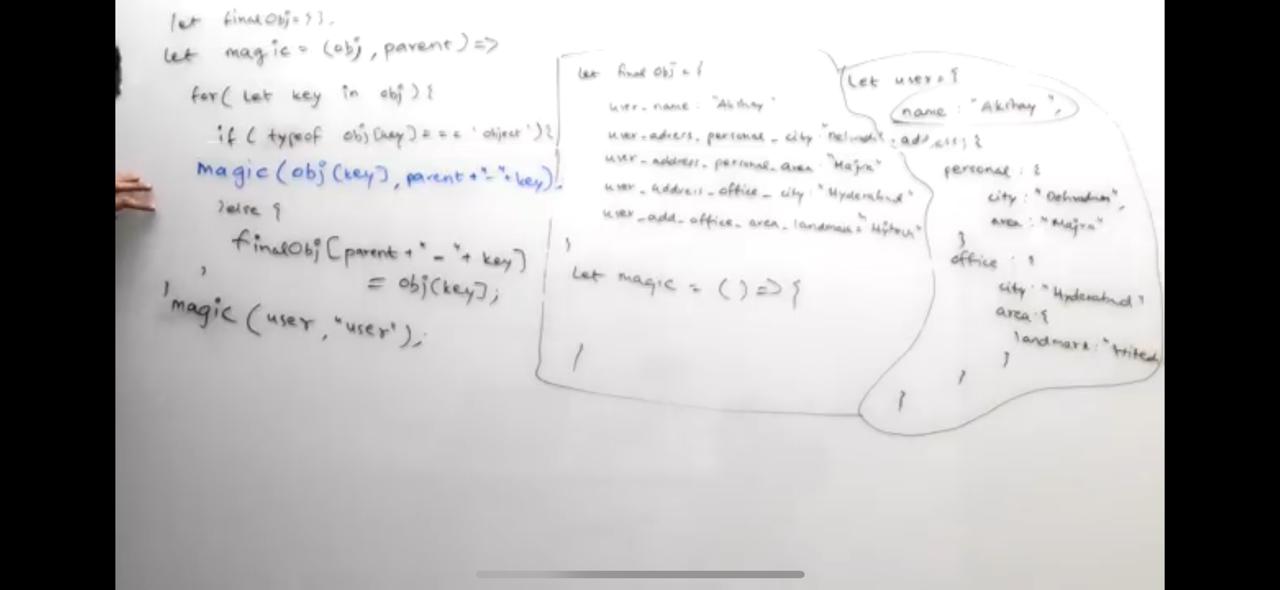 let finalObj = { };
let magic = (obj, parent) =>
for( let key in obj ) {
if ( typeof obj[key] === 'object' ) {
magic(obj[key], parent + "_" + key);
}else {
finalObj[parent + "_" + key]
= obj[key];
}
}
magic ( user, "user" );
let finalObj = {
user_name : "Akshay"
user_adress_personal_city :
user_address_personal_area : "Majra"
user_address_office_city : "Hyderabad"
user_add_office_area_landmark =
}
let magic = ( ) => {
}
Let user = {
name : "Akshay",
address : {
personal : {
city : "Dehradun",
area : "Majra"
}
office : {
city : "Hyderabad"
area : {
landmark :
}
}
}